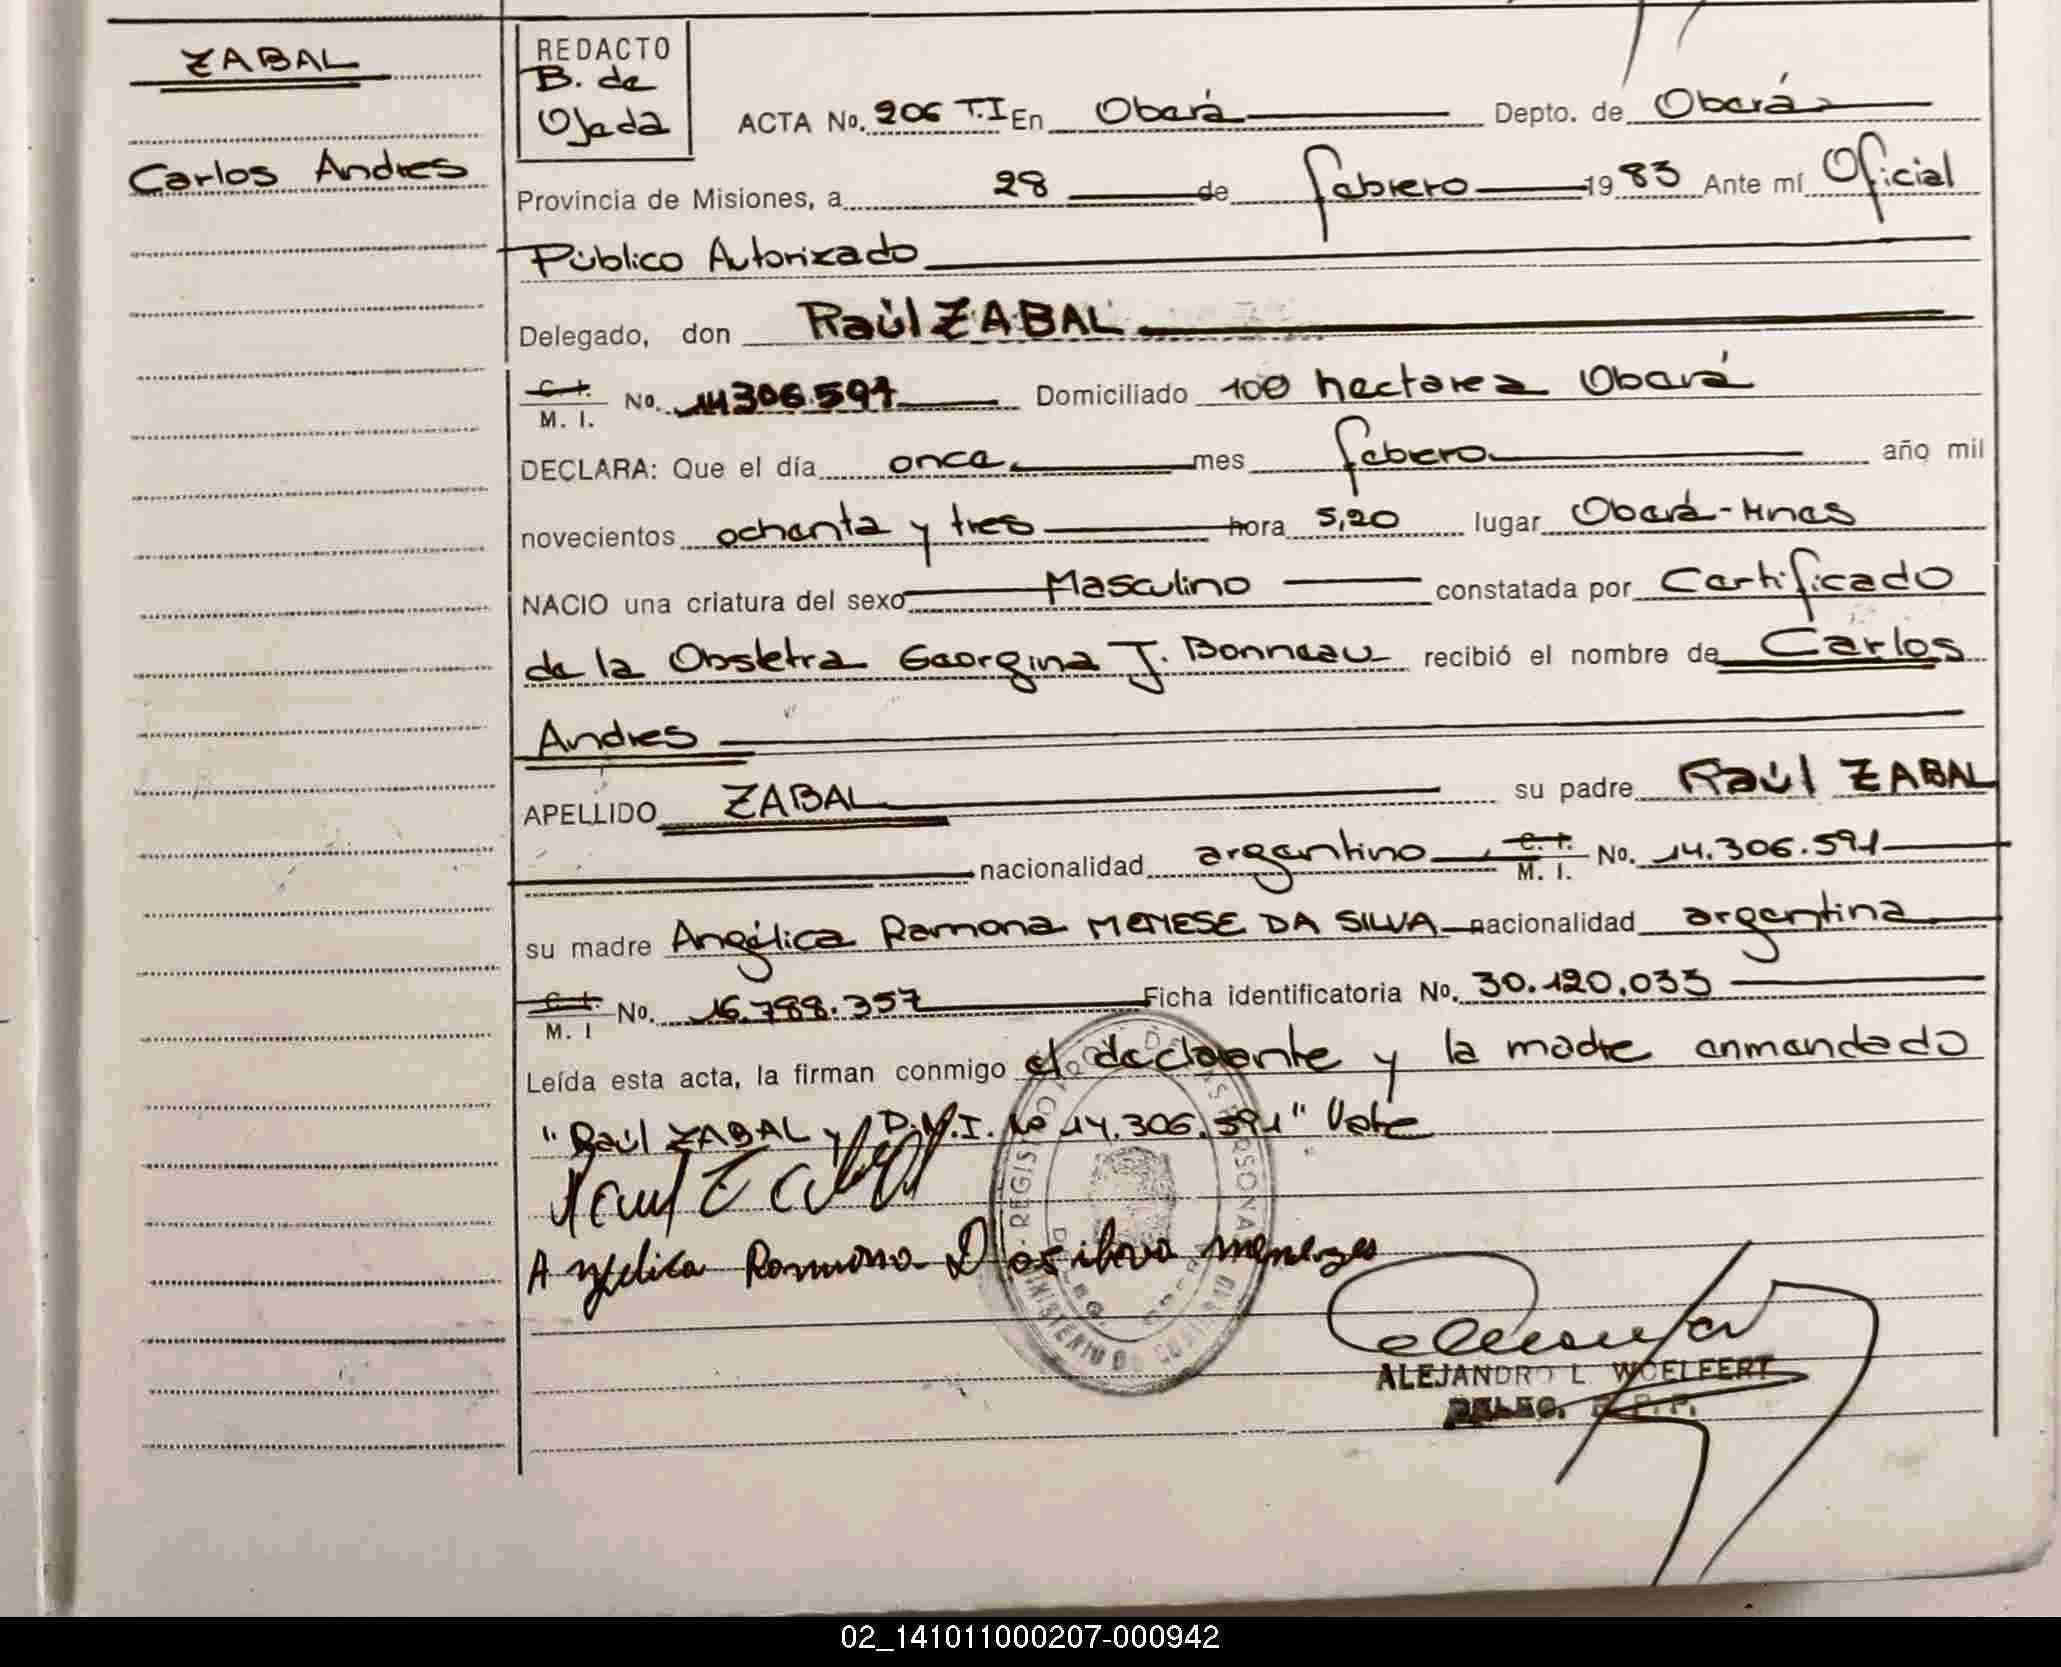 ZABAL
Carlos Andres
REDACTO
B. de
Ojeda
ACTA No. 206 T.I En Oberá Depto. de Oberá
Provincia de Misiones, a 28 de febrero 1983 Ante mí Oficial
Público Autorizado
Delegado, don Raúl ZABAL
C. I.
M. I. No. 14306.591 Domiciliado 100 hectarea Oberá
DECLARA: Que el día once mes febrero año mil
novecientos ochenta y tres hora 5,20 lugar Oberá-Mnes
NACIO una criatura del sexo Masculino constatada por Certificado
de la Obstetra Georgina J. Bonneau recibió el nombre de Carlos
Andres
APELLIDO ZABAL su padre Raúl ZABAL
nacionalidad argentino C. I. M. I. No. 14.306.591
su madre Angélica Ramona MENESE DA SILVA nacionalidad argentina
C. I.
M. I No. 16.788.357 Ficha identificatoria No. 30.120.033
Leída esta acta, la firman conmigo el declarante y la madre enmendado
"Raúl ZABAL y D.M.I. No 14.306.591" Vale
Raul Zabal
Angelica Ramona Dasilva menezes
ALEJANDRO L. WOELFERT
DELEG. R. P. P.
02_141011000207-000942